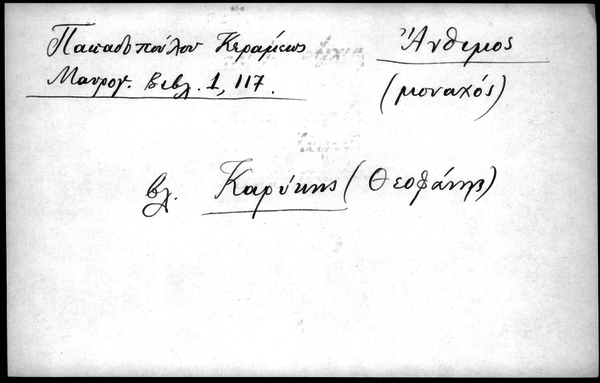 Παπαδοπούλου Κεραμέως
Μαυρογ. Βιβλ. 1, 117.
Ἄνθιμος
(μοναχός)
βλ. Καρύκης (Θεοφάνης)